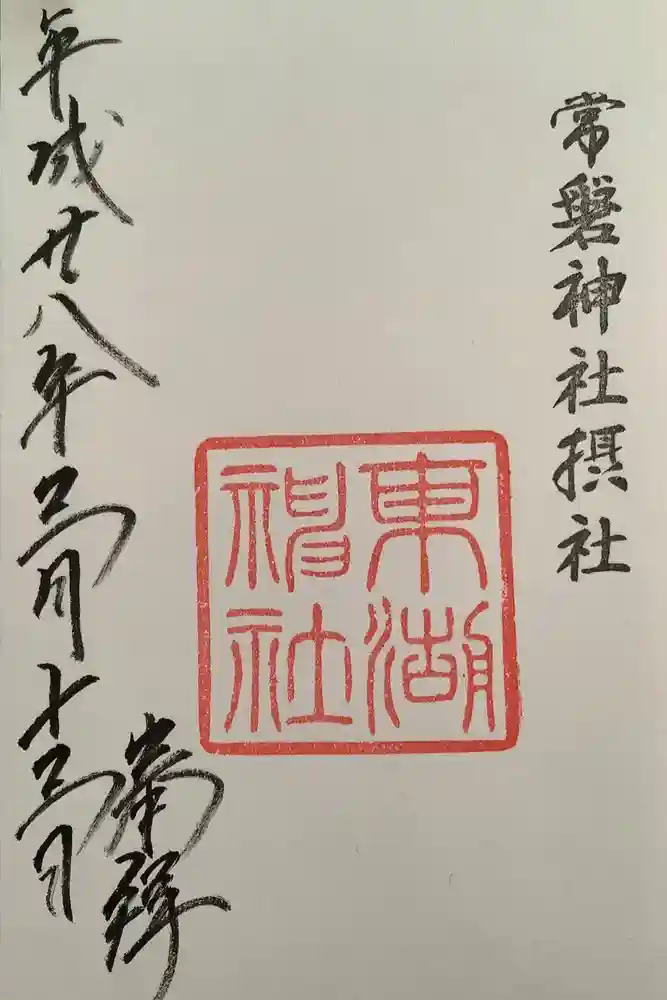 常磐神社摂社
東湖神社
平成廿八年三月十三日
拜